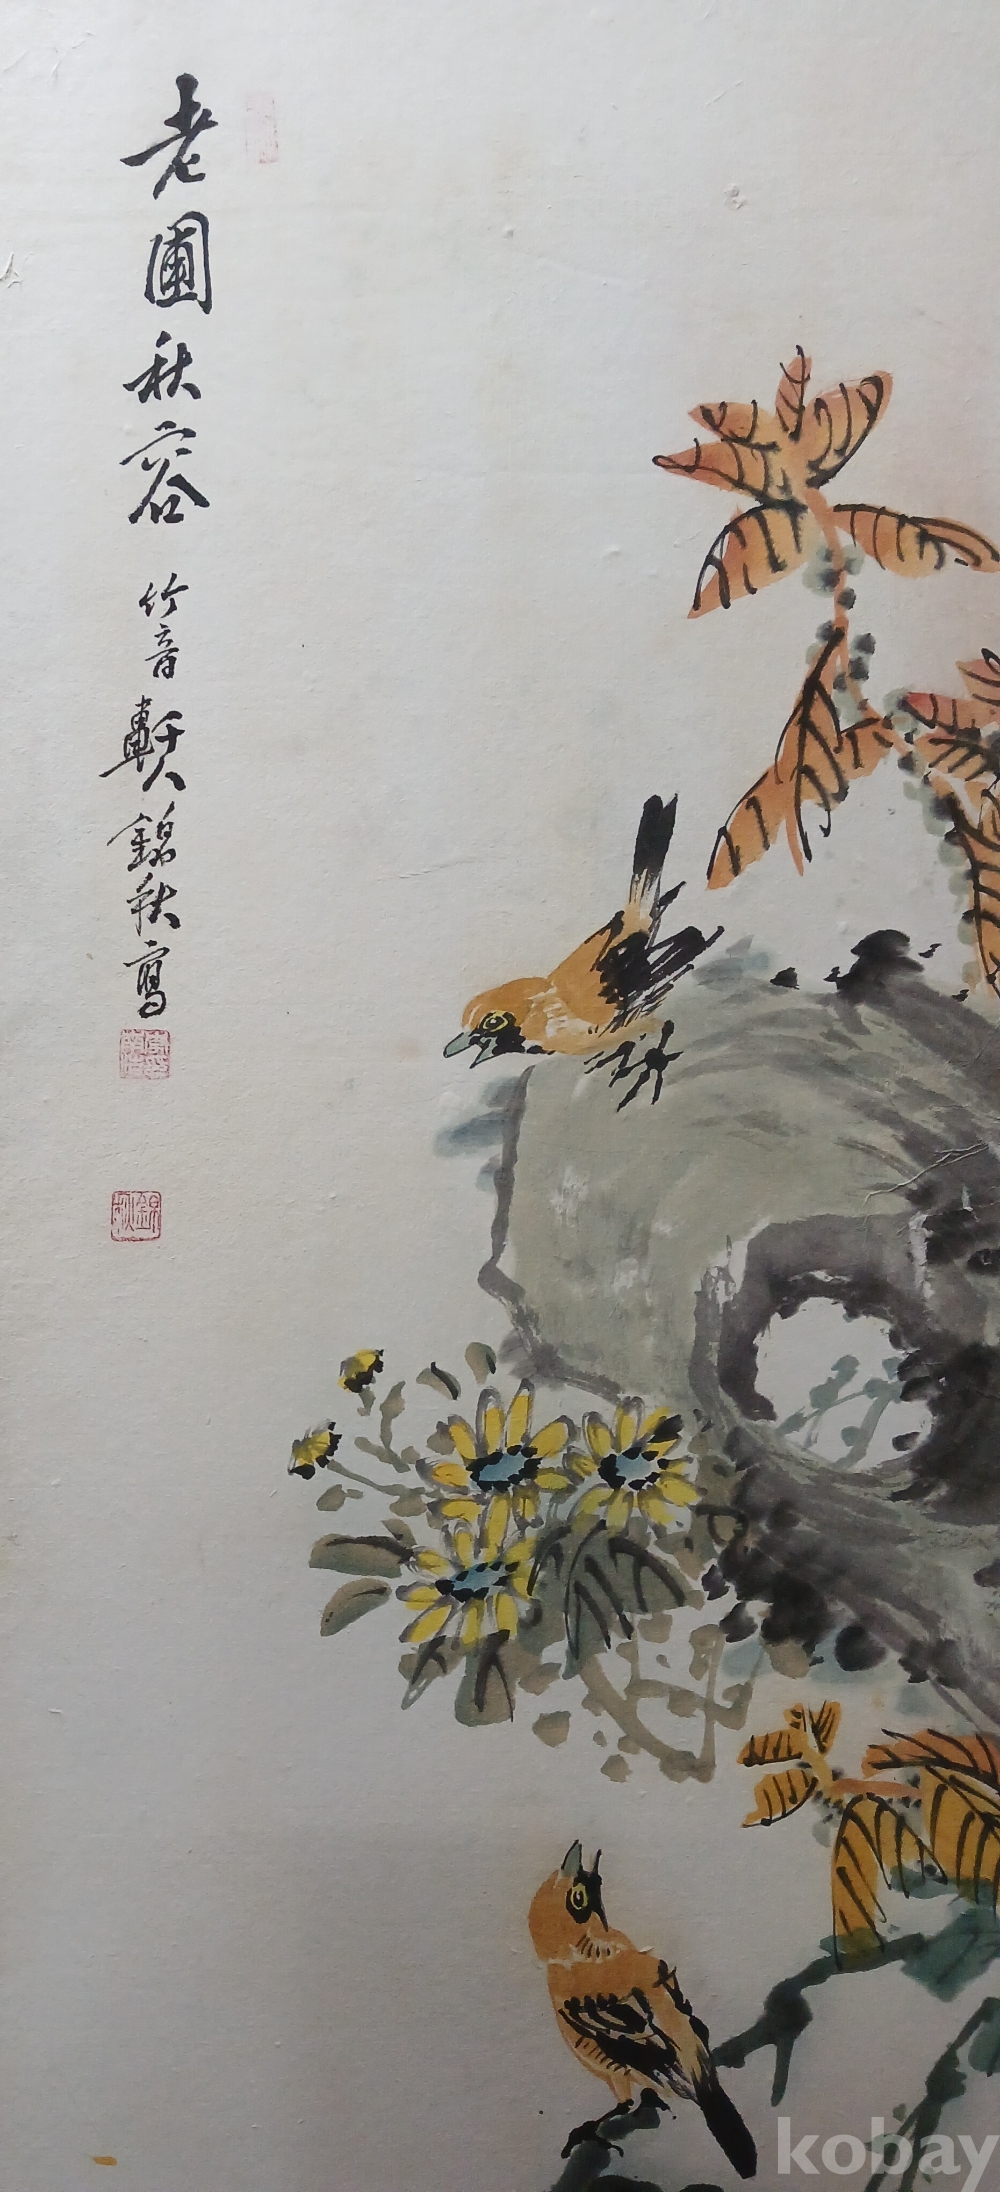 老圃秋容 竹音軒人錦秋寫
錦秋
kobay